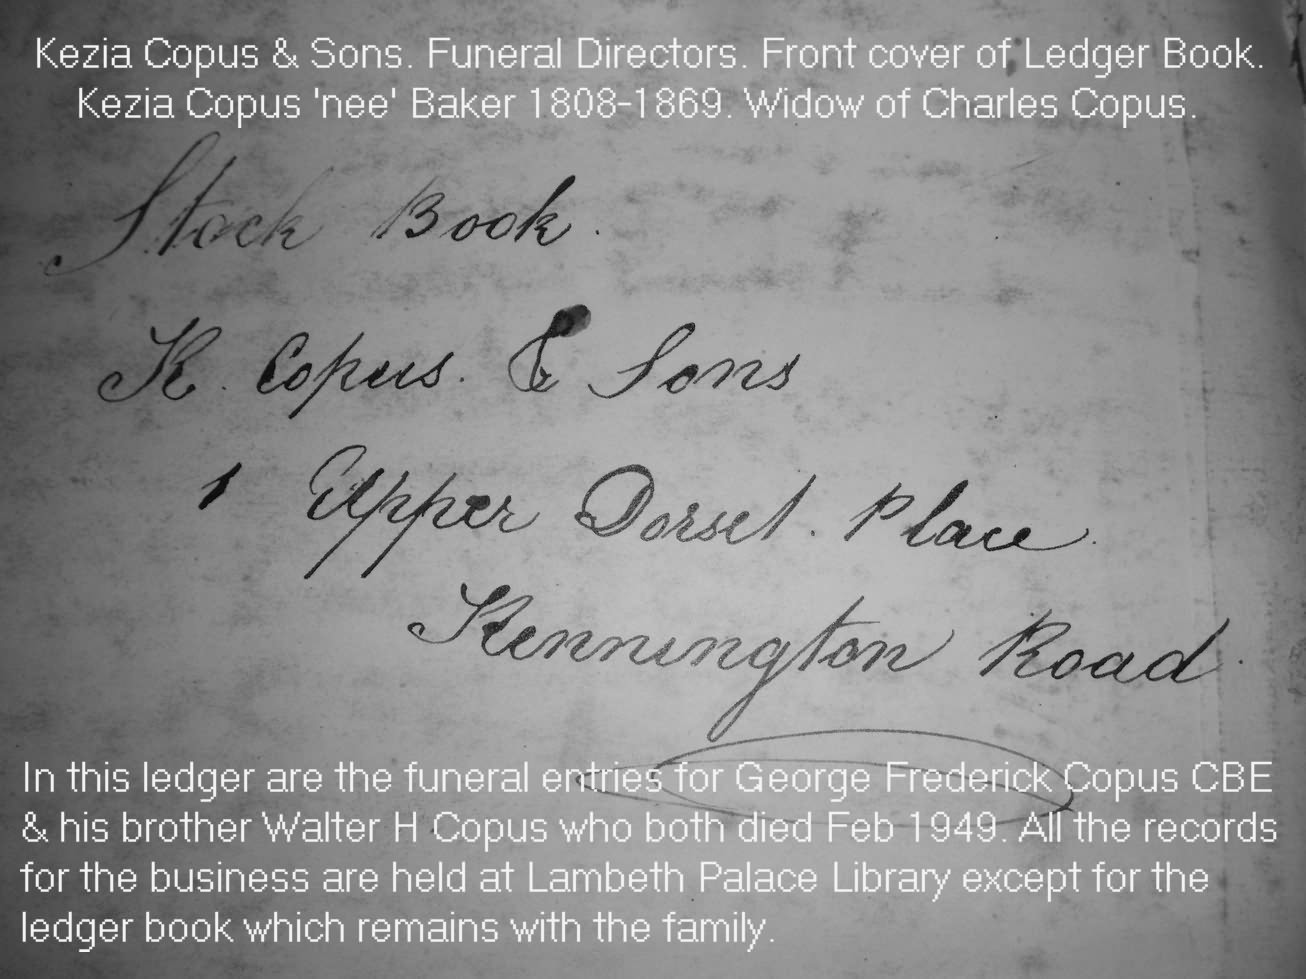 Kezia Copus & Sons. Funeral Directors. Front cover of Ledger Book.
Kezia Copus 'nee' Baker 1808-1869. Widow of Charles Copus.
Stock Book.
K. Copus. & Sons
1 Upper Dorset. Place
Kennington Road.
In this ledger are the funeral entries for George Frederick Copus CBE
& his brother Walter H Copus who both died Feb 1949. All the records
for the business are held at Lambeth Palace Library except for the
ledger book which remains with the family.